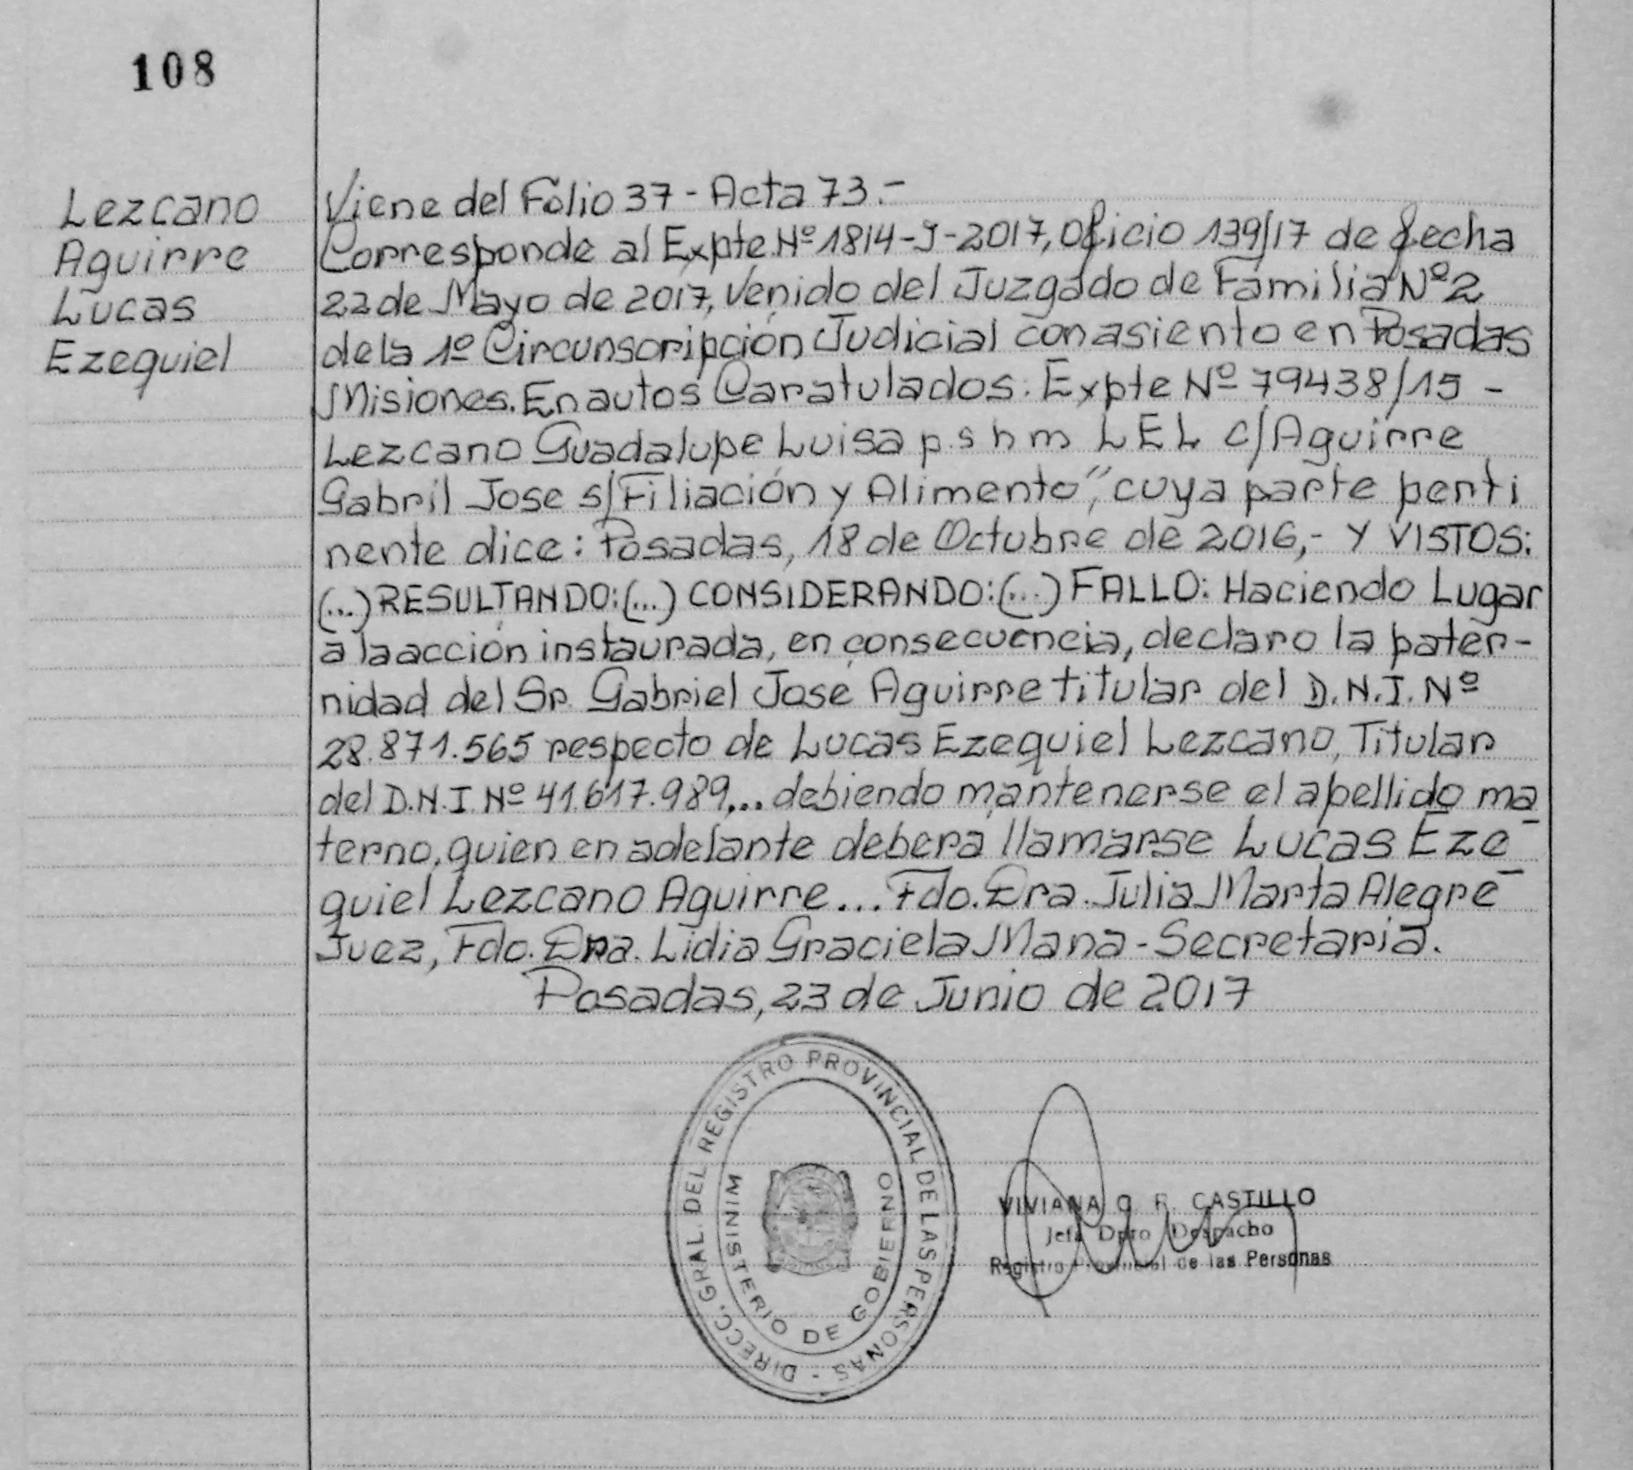 108
Lezcano
Aguirre
Lucas
Ezequiel
Viene del Folio 37 - Acta 73.-
Corresponde al Expte.Nº1814-J-2017, Oficio 139/17 de fecha
22 de Mayo de 2017, Venido del Juzgado de Familia Nº2
de la 1º Circunscripción Judicial con asiento en Posadas
Misiones. En autos Caratulados: Expte Nº 79438/15 -
Lezcano Guadalupe Luisa p.s h m LEL c/Aguirre
Gabril Jose s/Filiación y Alimento", cuya parte perti
nente dice: Posadas, 18 de Octubre de 2016,- Y VISTOS:
(...) RESULTANDO:(...) CONSIDERANDO:(...) FALLO: Haciendo Lugar
a la acción instaurada, en consecuencia, declaro la pater-
nidad del Sr. Gabriel Jose Aguirre titular del D.N.I. Nº
28.871.565 respecto de Lucas Ezequiel Lezcano, Titular
del D.N.I Nº 41.617.989,... debiendo mantenerse el apellido ma
terno, quien en adelante debera llamarse Lucas Eze-
quiel Lezcano Aguirre... Fdo. Dra. Julia Marta Alegre-
Juez, Fdo. Dra. Lidia Graciela Mana - Secretaria.
Posadas, 23 de Junio de 2017
DIRECC. GRAL. DEL REGISTRO PROVINCIAL DE LAS PERSONAS -
MINISTERIO DE GOBIERNO
VIVIANA CASTILLO
Jefa Dpto Despacho
Registro Provincial de las Personas